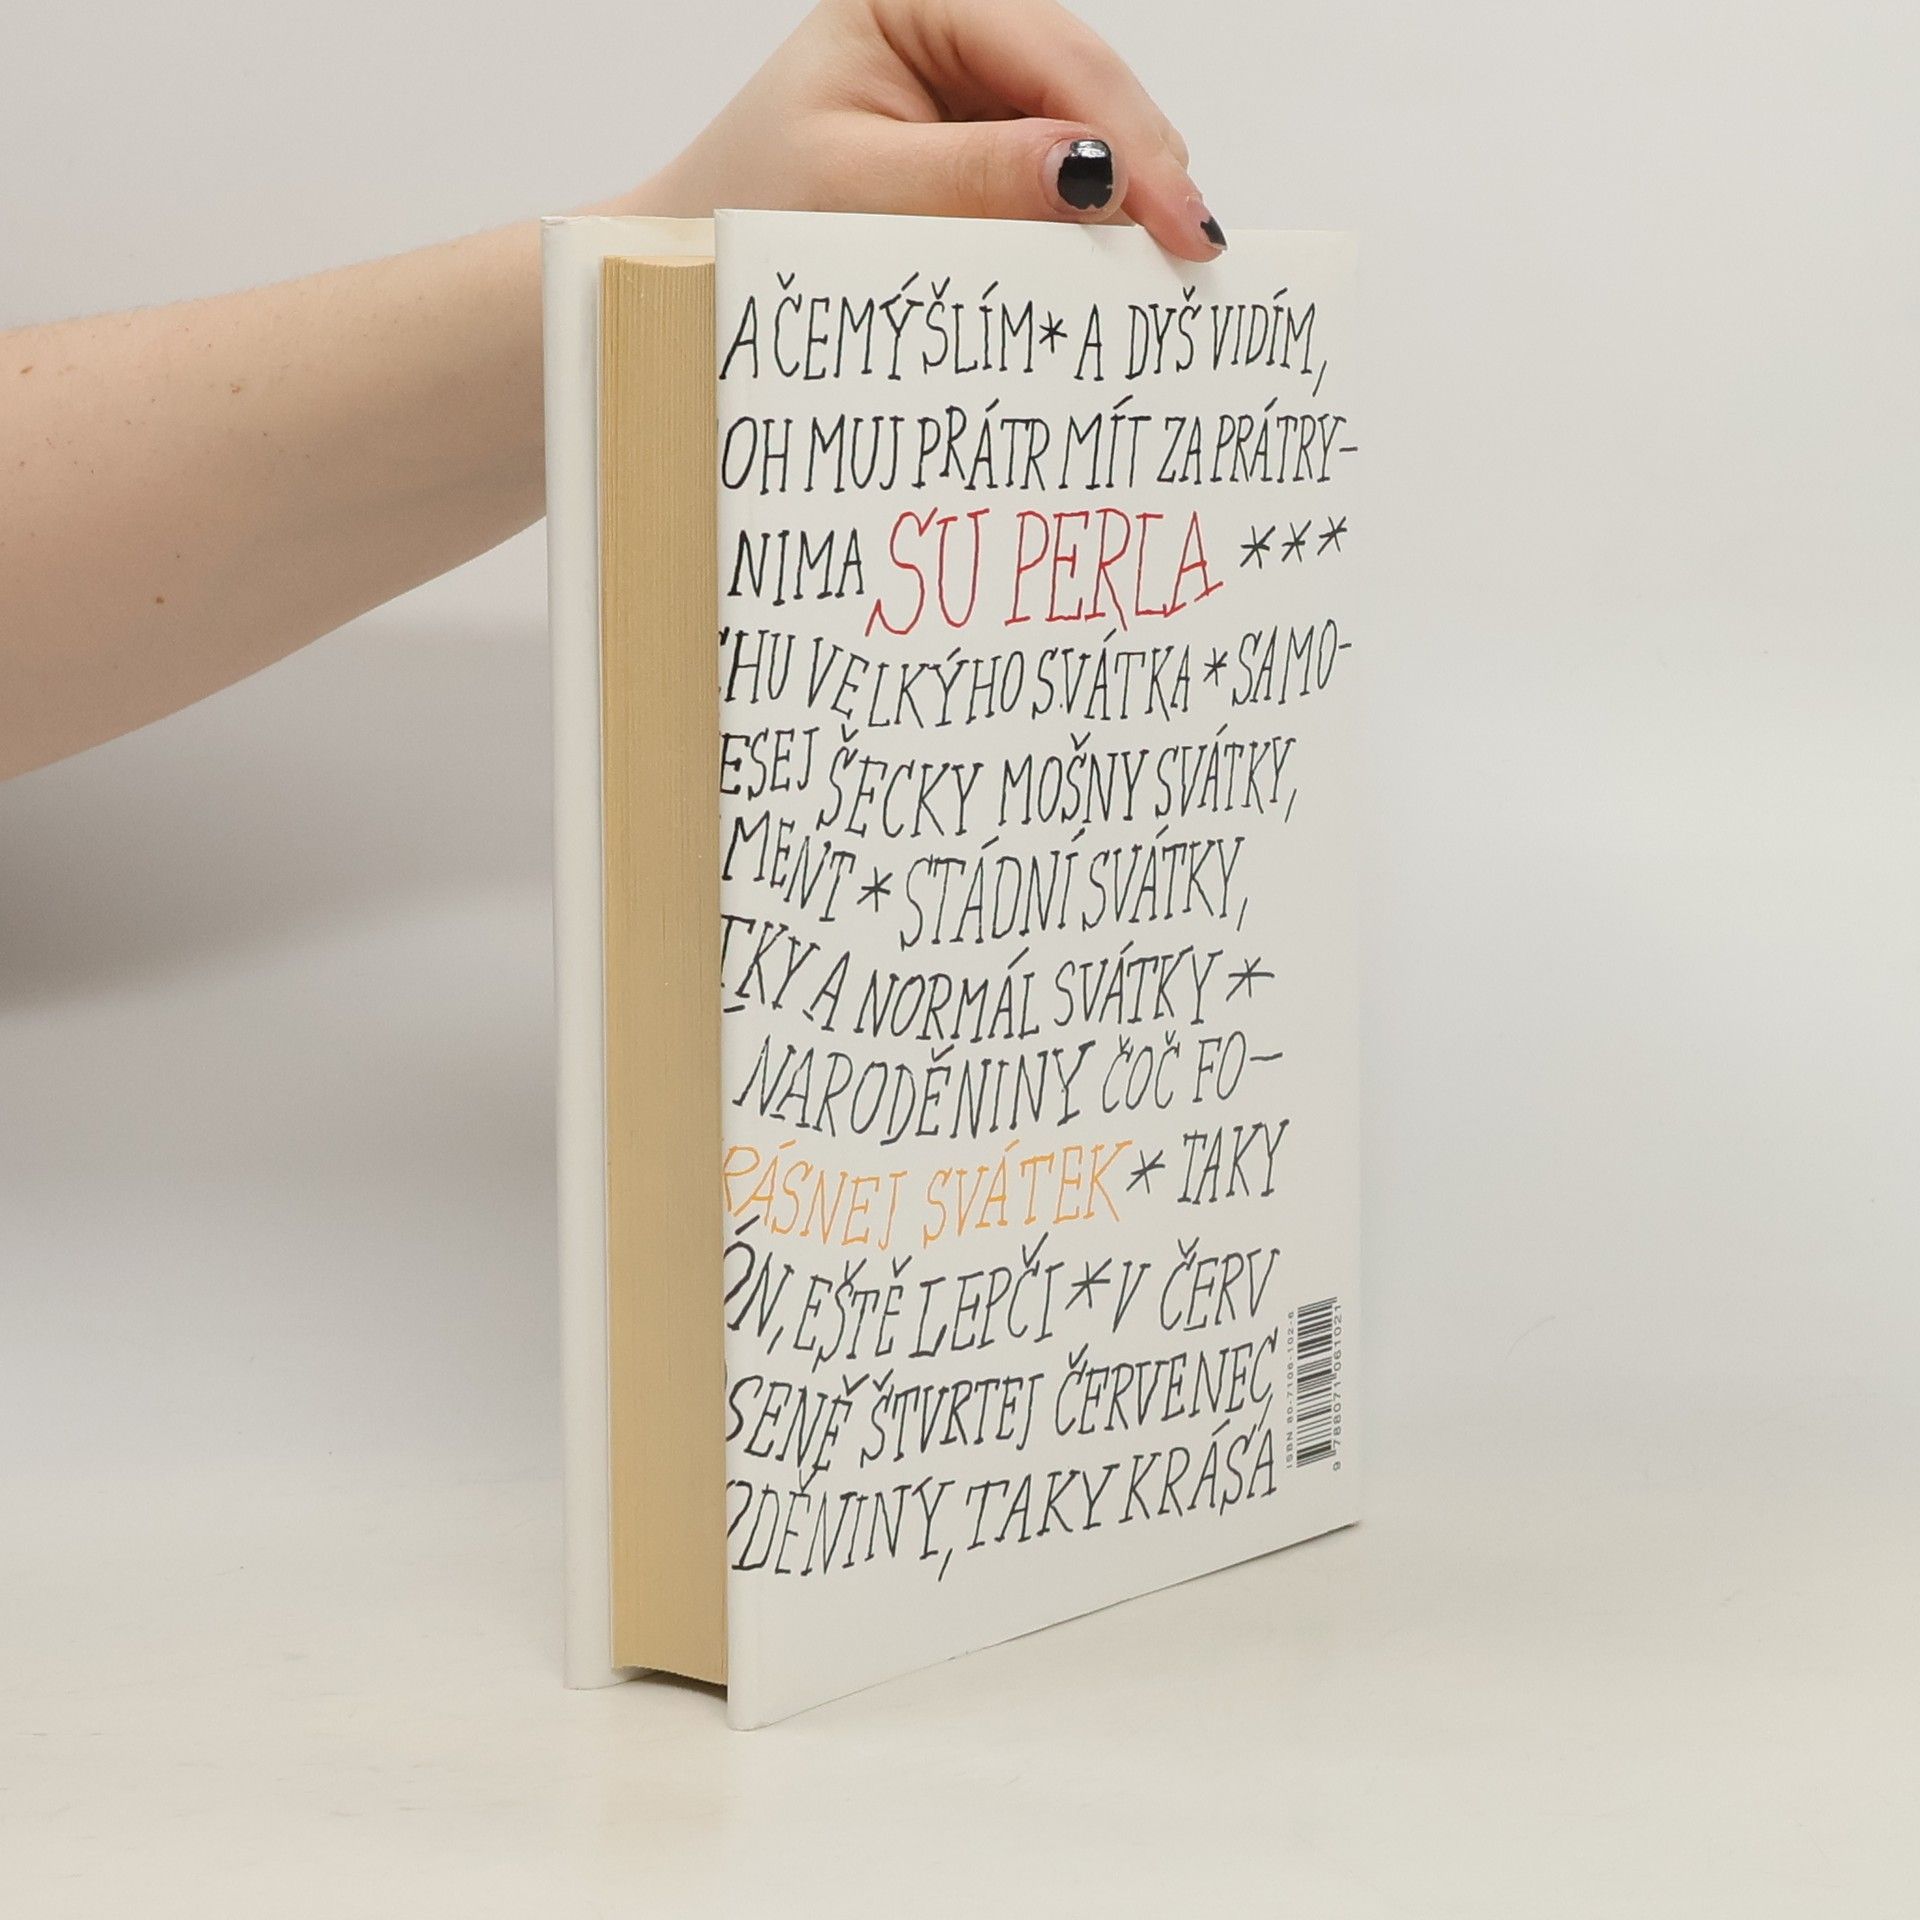 A ČEMÝŠLÍM * A DYŠ VIDÍM,
OH MUJ PRÁTR MÍT ZA PRÁTRY-
NIMA SU PERLA ***
CHU VELKÝHO SVÁTKA * SAMO-
ESEJ ŠECKY MOŠNY SVÁTKY,
MENT * STÁDNÍ SVÁTKY,
TKY A NORMÁL SVÁTKY *
NARODĚNINY ČOČ FO-
RÁSNEJ SVÁTEK * TAKY
ÓN, EŠTĚ LEPČI * V ČERV
SENĚ ŠTVRTEJ ČERVENEC
ODĚNINY, TAKY KRÁSÁ
ISBN 80-7106-102-8
9 788071 061021